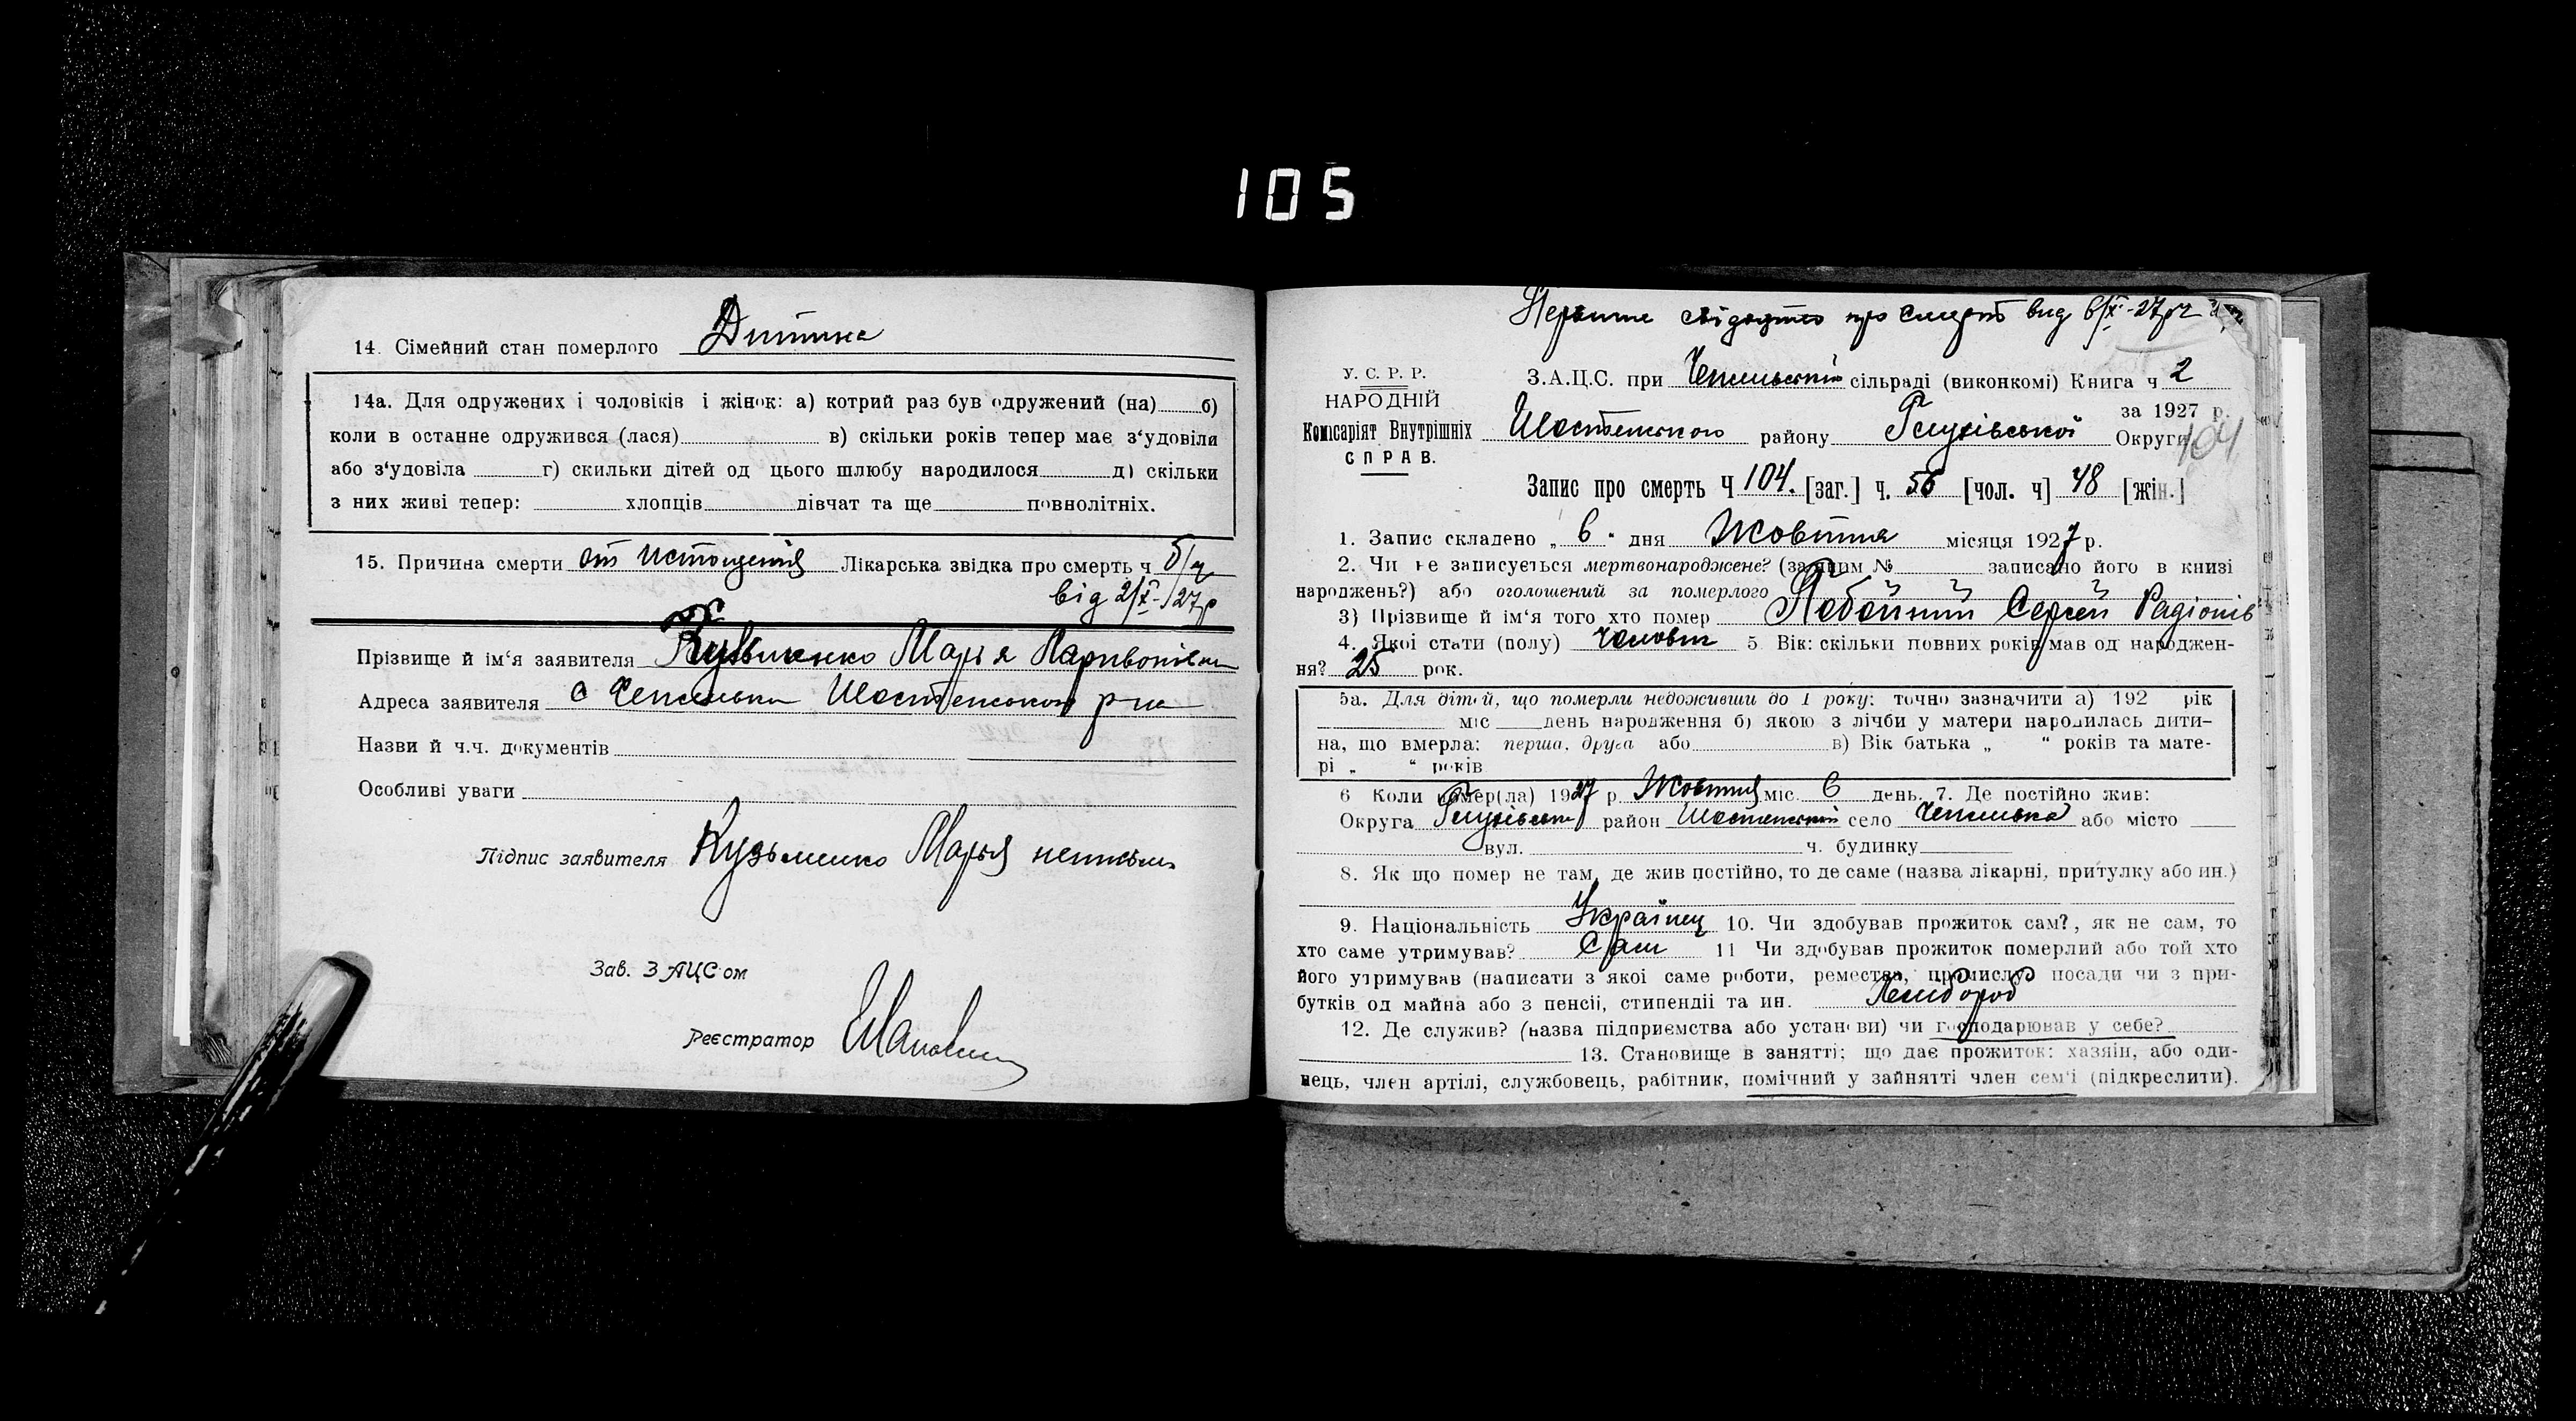 105
14. Сімейний стан померлого Дитина
14а. Для одружених і чоловіків і жінок: а) котрий раз був одружений (на) б)
коли в останне одружився (лася) в) скільки років тепер має з‘удовіли
або з‘удовіла г) скильки дітей од цього шлюбу народилося д) скільки
з них живі тепер: хлопців дівчат та ще повнолітніх.
15. Причина смерти от истощения Лікарська звідка про смерть ч б/ч
від 2/X-1927р
Прізвище й ім‘я заявителя Кузьменко Марья
Адреса заявителя с Чепльевка Шостенского р-на
Назви й ч.ч. документів
Особливі уваги
Підпис заявителя Кузьменко Марья неписьм
Зав. ЗАЦС‘ом
Реєстратор
Первише свідоцтво про смерть вид 6/X-27р
У. С. Р. Р.
НАРОДНІЙ
Комісаріят Внутрішніх
СПРАВ.
З.А.Ц.С. при сільраді (виконкомі) Книга ч 2
за 1927 р.
Шостенского району Глухівської Округи
104
Запис про смерть Ч 104. [заг.] ч. 56 [чол. ч] 48 [жін.]
1. Запис складено „ 6 “ дня Жовтня місяця 1927 р.
2. Чи не записується мертвонароджене? (за яким № записано його в книзі
народжень?) або оголошений за померлого
3) Прізвище й ім‘я того хто помер Лобойний Сергей Радіонів
4. Якої стати (полу) Чоловік 5 Вік: скільки повних років мав од народжен-
ня? 25 рок.
5а. Для дітей, що померли недоживши до 1 року: точно зазначити а) 192 рік
міс день народження б) якою з лічби у матери народилась дити-
на, що вмерла: перша, друга або в) Вік батька „ “ років та мате-
рі „ “ років
6 Коли помер(ла) 1927 р Жовтня міс. 6 день. 7. Де постійно жив:
Округа Глухівськ район Шостенский село Чепльевка або місто
вул. ч. будинку
8. Як що помер не там, де жив постійно, то де саме (назва лікарні, притулку або ин.)
9. Національність Українец 10. Чи здобував прожиток сам?, як не сам, то
хто саме утримував? Сам 11 Чи здобував прожиток померлий або той хто
його утримував (написати з якої саме роботи, ремества, промислу посади чи з при-
бутків од майна або з пенсії, стипендії та ин. Хлибороб
12. Де служив? (назва підприємства або установи) чи господарював у себе?
13. Становище в занятті: що дає прожиток: хазяїн, або оди-
нець, член артілі, службовець, рабітник, помічний у зайнятті член сем‘ї (підкреслити).